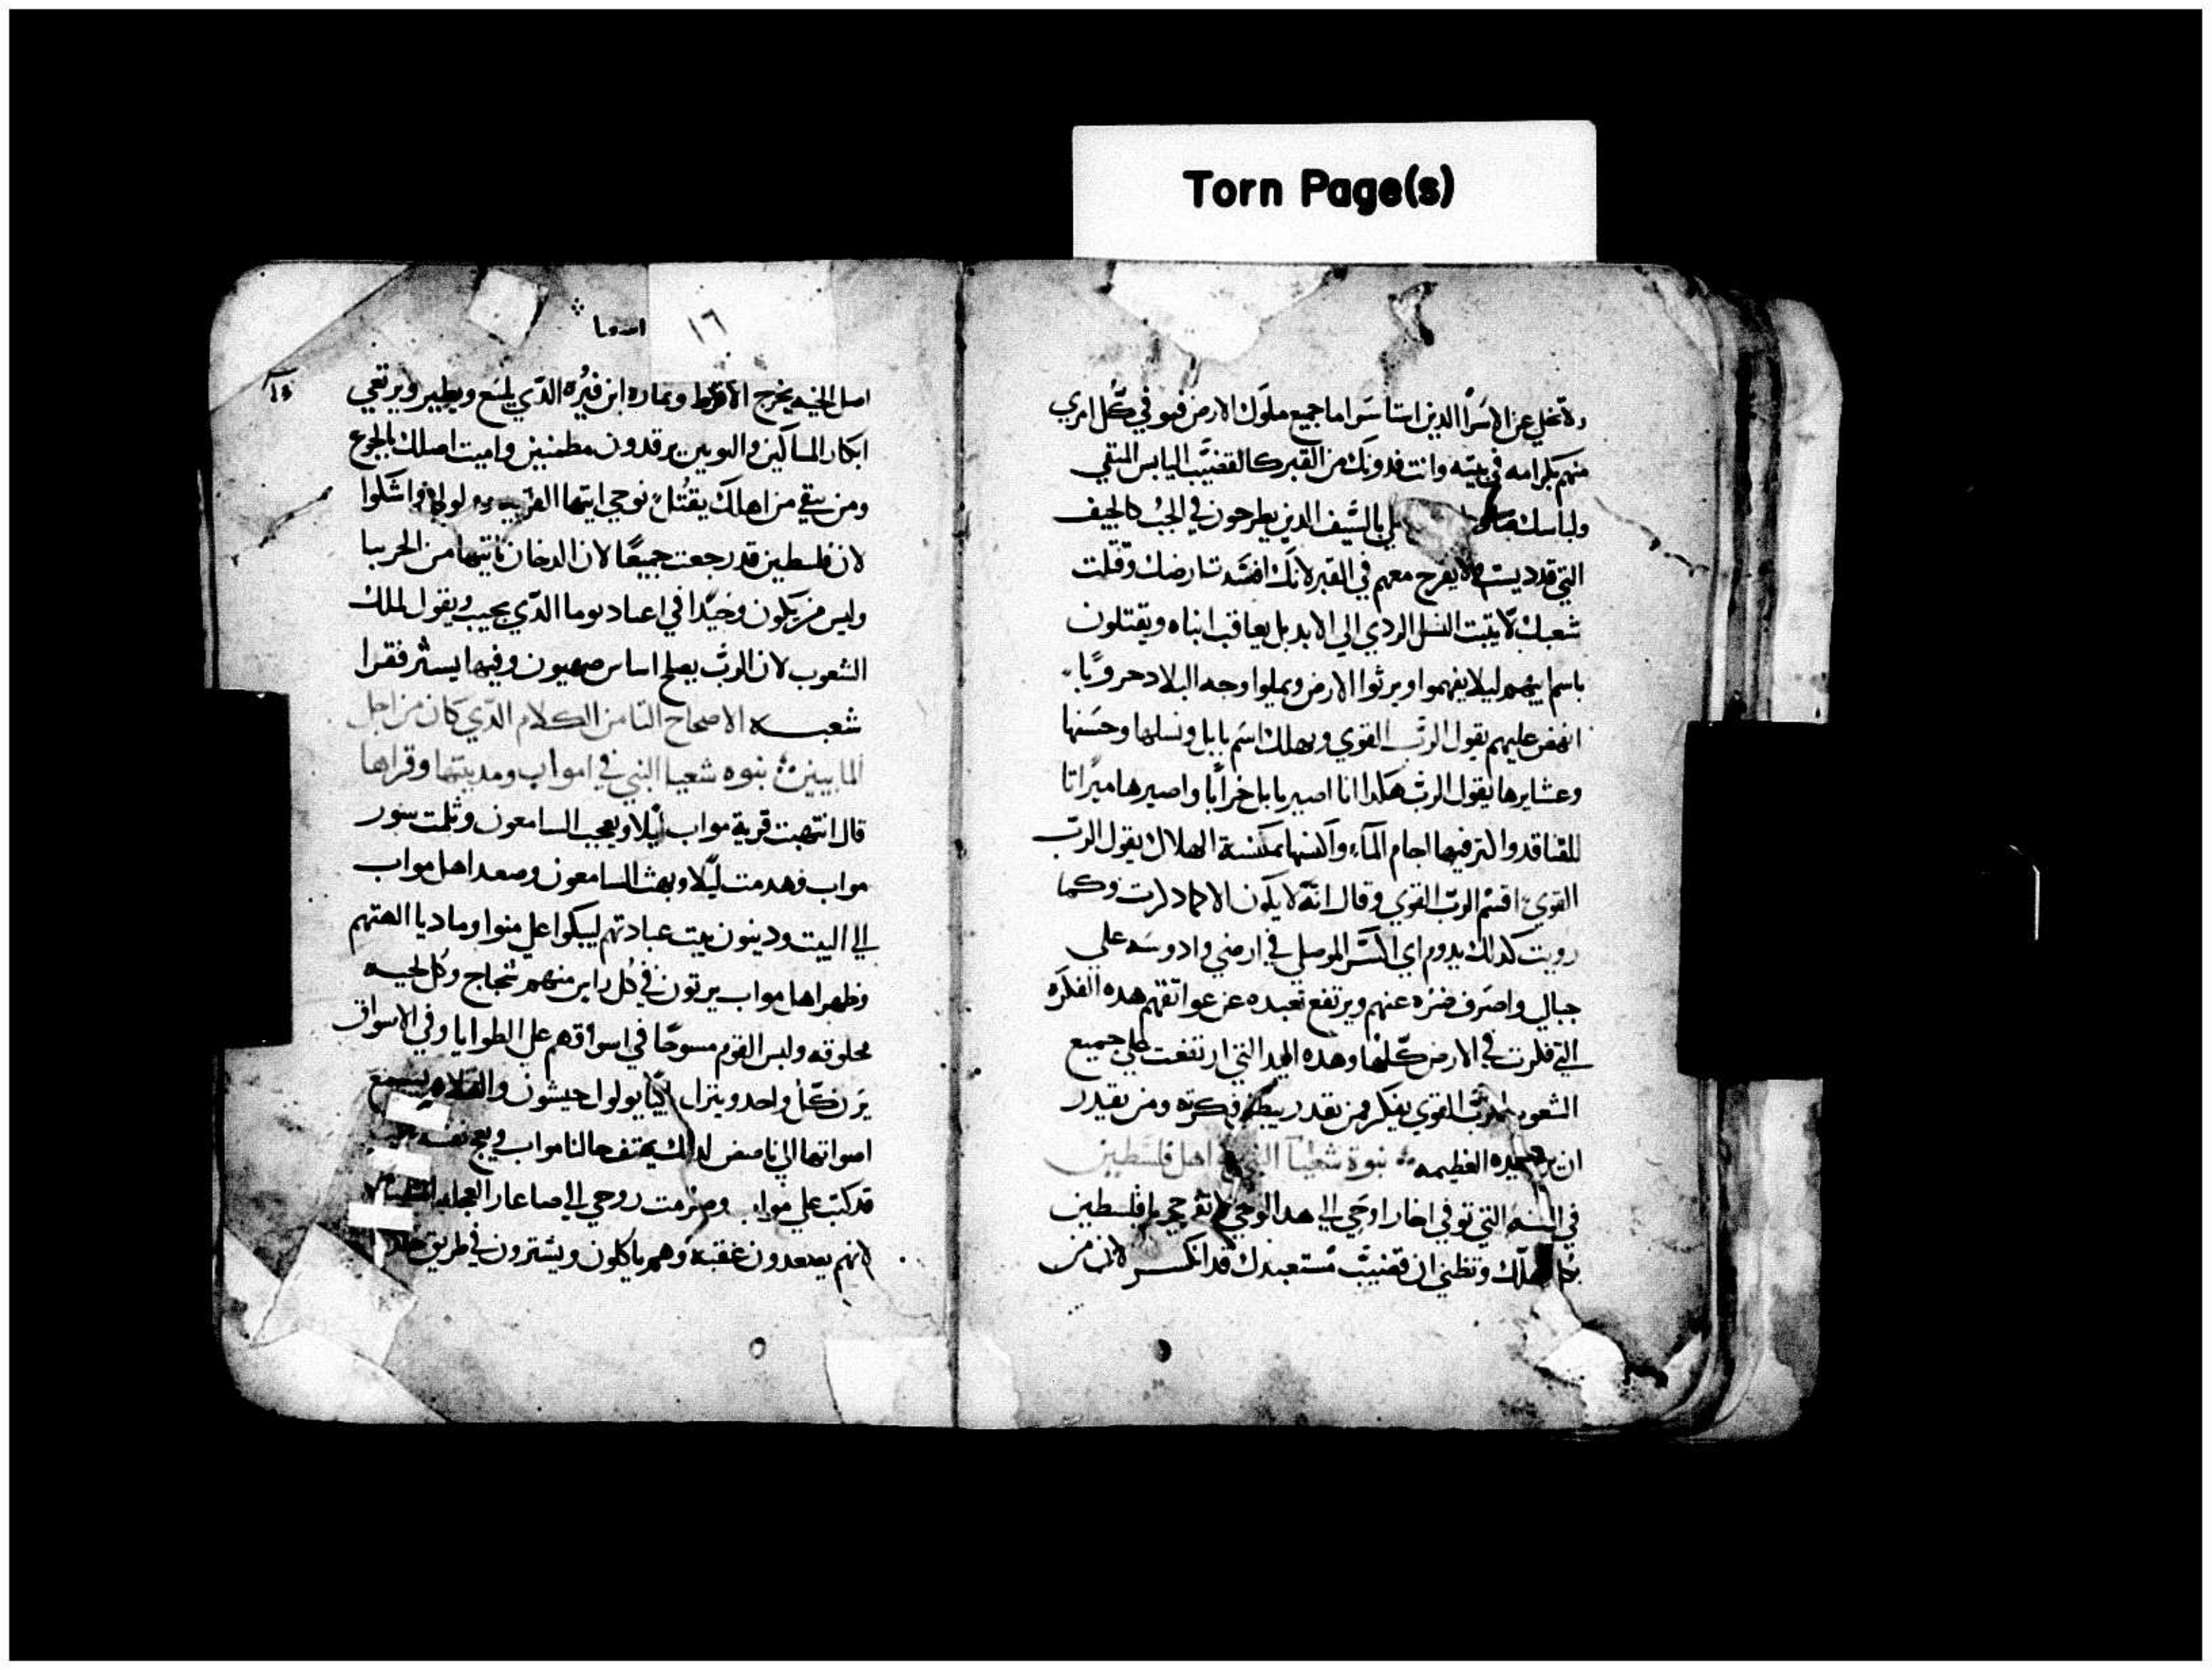 Torn Page(s)
ولا تخلي عن الاسرا الذين استاسرا اما جميع ملوك الارض فهو في كل امري
منهم بكرامه في بيته وانت فدونك من القبر كالقضيب اليابس المنقي
ولباسك بالسيف الدين يطرحون في الجب كالجيف
التي قد ديست لا يفرح معهم في القبر لانك افسدت ارضك وقتلت
شعبك لا يتبت النسل الردي الي الابد بل يعاقب ابناه ويقتلون
باسم ابيهم ليلا يفهموا ويرثوا الارض ويملوا وجه البلاد حروبا
انهض عليهم يقول الرب القوي ويهلك اسم بابل ونسلها وحسنها
وعشايرها يقول الرب هكدا انا اصير بابل خرابا واصيرها ميراثا
للقنافد والتر فيها اجام الماء واكنسها بمكنسة الهلاك يقول الرب
القوي اقسم الرب القوي وقال انه لا يكون الا كما دكرت وكما
رويت كدلك يدوم اي اكسر الموصلي في ارضي وادوسه علي
جبالي واصرف ضره عنهم ويرتفع تعبده عن عواتقهم هده الفكره
التي فكرت في الارض كلها وهده اليد التي ارتفعت علي جميع
الشعوب الرب القوي يفكر فمن يقدر يبطل فكرته ومن يقدر
ان يرد يده العظيمه نبوة شعيا النبي اهل فلسطين
في السنه التي توفي احاز اوحي الي هدا الوحي لا تفرحي يا فلسطين
كلك وتظني ان قضيب مستعبدك قد انكسر لان من
١٦
١٥
اصل الحيه يخرج الافرط وثماره ابن فيره الدي يلسع ويطير ويرتعي
ابكار المساكين والبويين يرقدون مطمئنين واميت اصلك بالجوع
ومن بقي من اهلك يقتل نوحي ايتها القريه ولولوا واشكلوا
لان فلسطين قد رجعت جميعا لان الدخان ياتيها من الحربيا
وليس من يكون وحيدا في اعياد يوما الدي يجيب ويقول لملك
الشعوب لان الرب يصلح اساس صهيون وفيها يستر فقرا
شعبه الاصحاح الثامن الكلام الدي كان من اجل
المابيين نبوه شعيا النبي في امواب ومدينتها وقراها
قال انتهبت قرية مواب ليلا ويعجب السامعون وثلمت سور
مواب وهدمت ليلا وبهت السامعون وصعد اهل مواب
الي البيت ودينون بيت عبادتهم ليبكوا علي منوا وماديا الهتهم
وظهر اهل مواب يرتون في كل راس منهم تحجاج وكل لحيه
محلوقه ولبس القوم مسوحا في اسواقهم علي الطوايا وفي الاسواق
يرن كل واحد وينزل باكيا يولول حيشون والعلاه يسمع
اصواتها الي ناحض لدلك يهتف حالنا مواب ويعج
قد كنت علي مواب وصرمت روحي الي صاعار العجله
لانهم يصعدون عقبه وهم ياكلون ويشترون في طريق